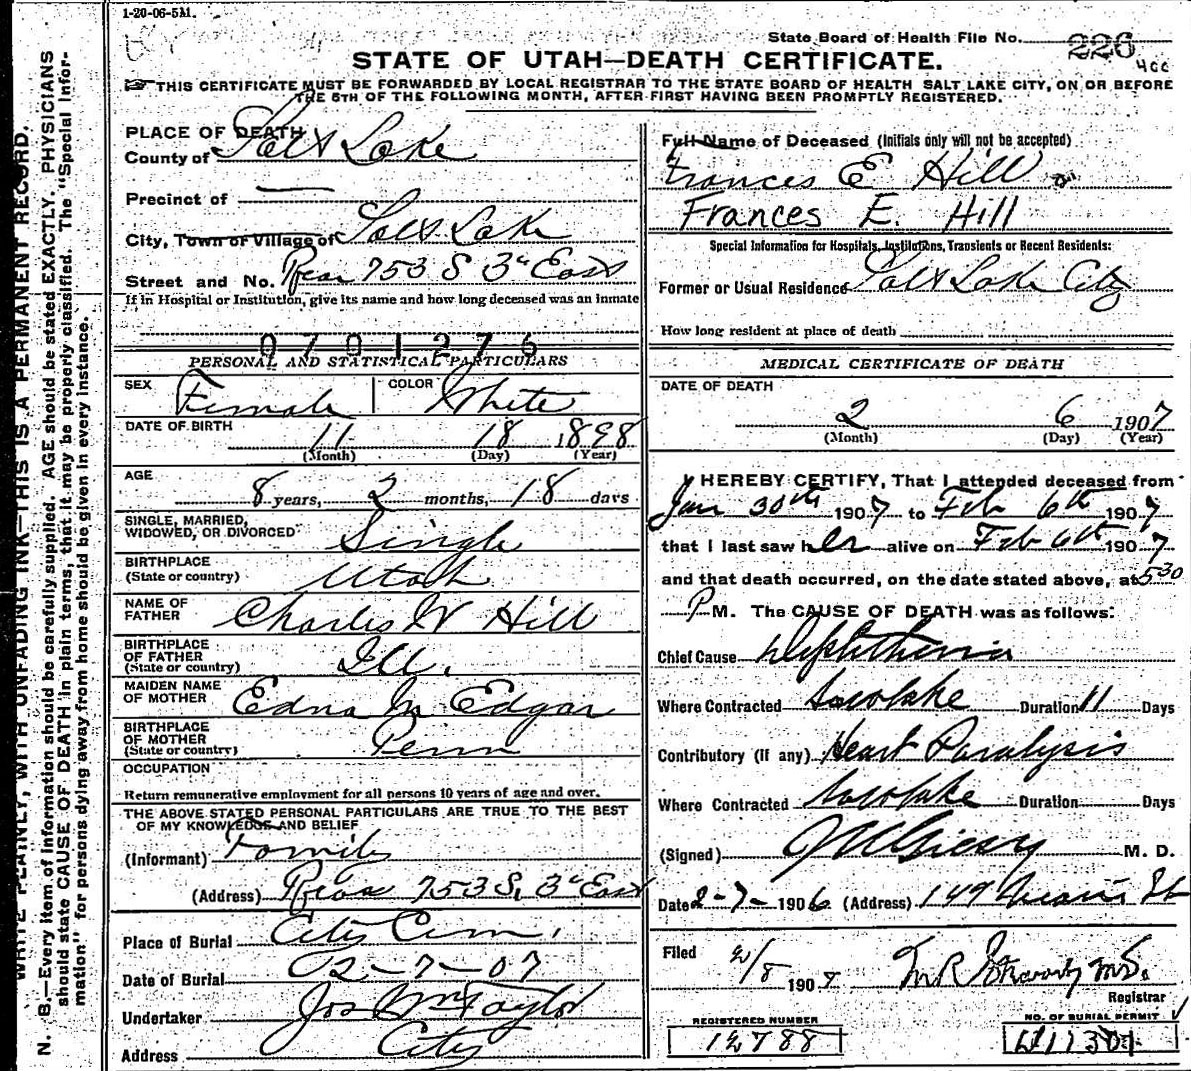 1-20-06-5M.
State Board of Health File No. 226
STATE OF UTAH—DEATH CERTIFICATE.
☞ THIS CERTIFICATE MUST BE FORWARDED BY LOCAL REGISTRAR TO THE STATE BOARD OF HEALTH SALT LAKE CITY, ON OR BEFORE
THE 5TH OF THE FOLLOWING MONTH, AFTER FIRST HAVING BEEN PROMPTLY REGISTERED.
WRITE PLAINLY, WITH UNFADING INK—THIS IS A PERMANENT RECORD.
N. B.—Every item of information should be carefully supplied. AGE should be stated EXACTLY. PHYSICIANS
should state CAUSE OF DEATH in plain terms, that it may be properly classified. The "Special Infor-
mation" for persons dying away from home should be given in every instance.
PLACE OF DEATH
County of Salt Lake
Precinct of —
City, Town or Village of Salt Lake
Street and No. Rear 753 S 3d East
If in Hospital or Institution, give its name and how long deceased was an inmate
0701276
PERSONAL AND STATISTICAL PARTICULARS
SEX Female COLOR White
DATE OF BIRTH 11 18 1898
(Month) (Day) (Year)
AGE 8 years, 2 months, 18 days
SINGLE, MARRIED,
WIDOWED, OR DIVORCED Single
BIRTHPLACE
(State or country) Utah
NAME OF
FATHER Charles W Hill
BIRTHPLACE
OF FATHER
(State or country) Ill.
MAIDEN NAME
OF MOTHER Edna M Edgar
BIRTHPLACE
OF MOTHER
(State or country) Penn
OCCUPATION
Return remunerative employment for all persons 10 years of age and over.
THE ABOVE STATED PERSONAL PARTICULARS ARE TRUE TO THE BEST
OF MY KNOWLEDGE AND BELIEF
(Informant) Family
(Address) Rear 753 S. 3d East
Place of Burial City Cem.
Date of Burial 2-7-07
Undertaker Jos Wm Taylor
Address City
Full Name of Deceased (Initials only will not be accepted)
Frances E Hill
Frances E. Hill
Special Information for Hospitals, Institutions, Transients or Recent Residents:
Former or Usual Residence Salt Lake City
How long resident at place of death
MEDICAL CERTIFICATE OF DEATH
DATE OF DEATH
2 6 1907
(Month) (Day) (Year)
I HEREBY CERTIFY, That I attended deceased from
Jan 30th 1907 to Feb 6th 1907
that I last saw her alive on Feb 6th 1907
and that death occurred, on the date stated above, at 5 30
P M. The CAUSE OF DEATH was as follows:
Chief Cause Diphtheria
Where Contracted Duration 11 Days
Contributory (if any) Heart Paralysis
Where Contracted Duration Days
(Signed) M. D.
Date 2-7-1906 (Address) 149 St
Filed 2/8 190
Registrar
REGISTERED NUMBER
12788
NO. OF BURIAL PERMIT